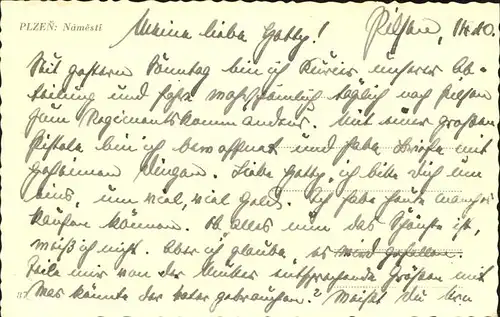 PLZEŇ: Náměstí
Meine liebe Hotty! Pilsen,
Seit gestern Sonntag bin ich Kurier unserer Ab-
teilung und fahre wahrscheinlich täglich nach Pilsen
zum Regimentskommandeur. Mit einer großen
Pistole bin ich bewaffnet und habe Briefe mit
geheimen Dingen. Liebe Hotty, ich bitte dich um
eins, um viel, viel Geld. Ich habe heute manches
kaufen können. Ob alles nun das Schönste ist,
weiß ich nicht. Aber ich glaube, es wird gefallen.
Teile mir von der Mutter entsprechende Größen mit
Was könnte der Vater gebrauchen? Weißt du